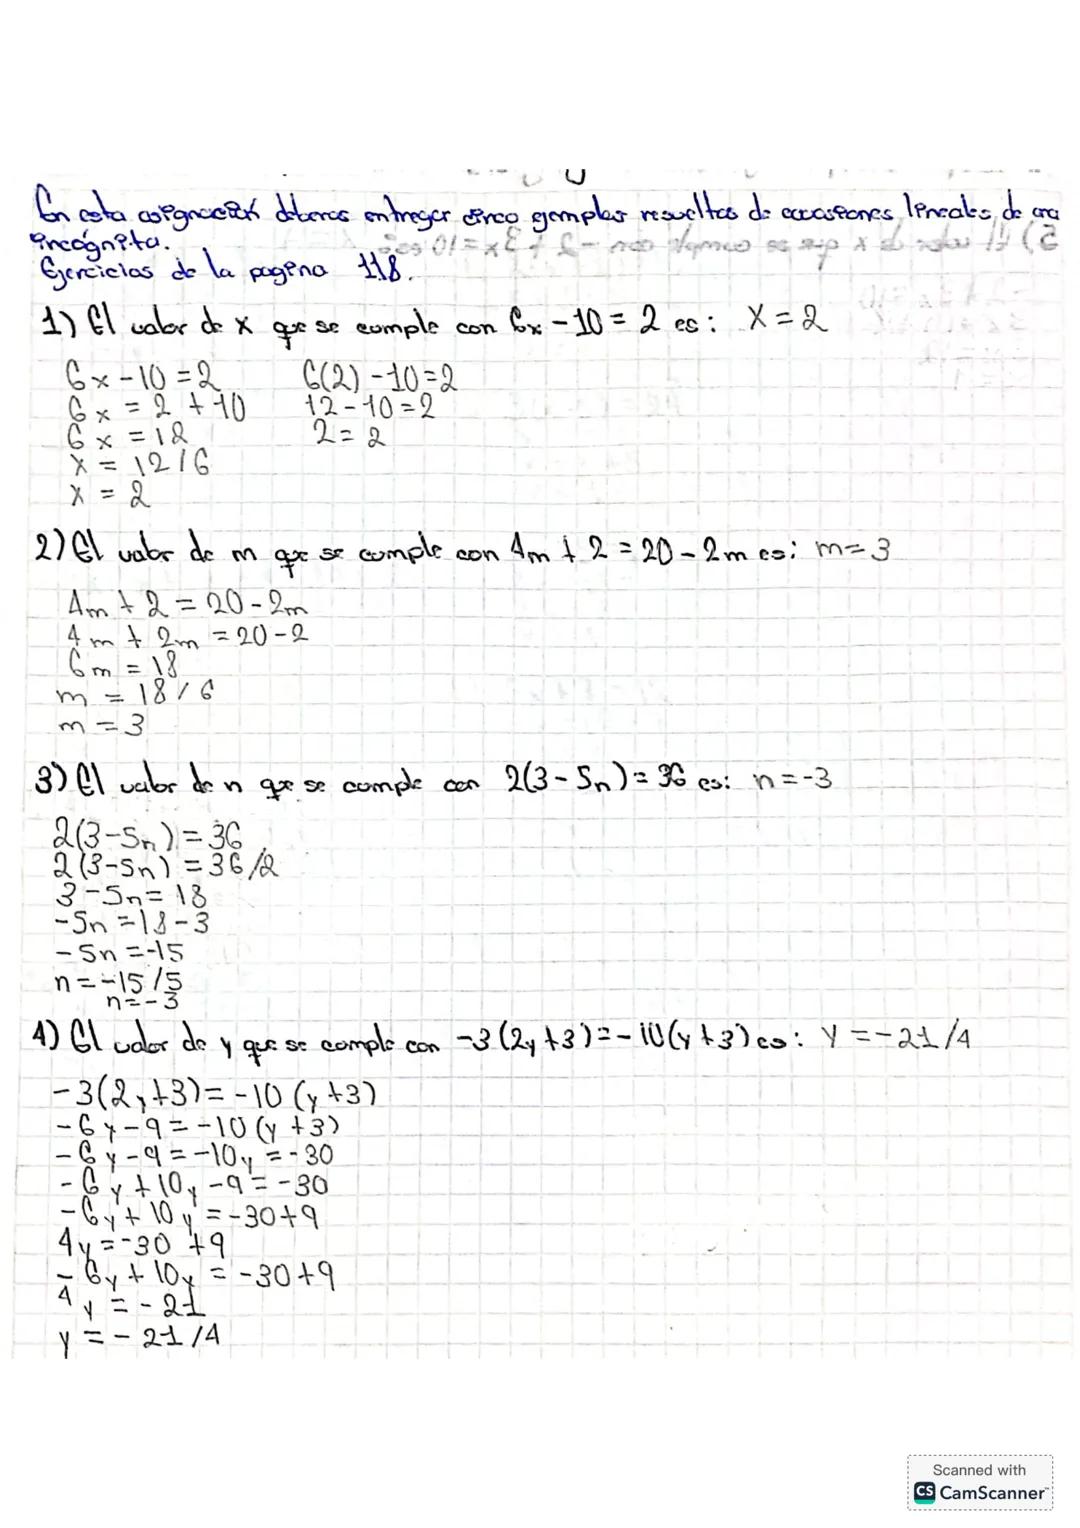 En esta asignación deberas entregar cinco ejemplos resueltos de ecuaciones lineales de una
incógnita.
Ejercicios de la pagina 118.
1) El valor de x que se cumple con 6x - 10 = 2 es: X = 2
6x - 10 = 2 6(2) - 10 = 2
6x = 2 + 10 12 - 10 = 2
6x = 12 2 = 2
x = 12/6
x = 2
2) El valor de m que se cumple con 4m + 2 = 20 - 2m es: m = 3
4m + 2 = 20 - 2m
4m + 2m = 20 - 2
6m = 18
m = 18/6
m = 3
3) El valor de n que se cumple con 2(3 - 5n) = 36 es: n = -3
2(3 - 5n) = 36
2(3 - 5n) = 36/2
3 - 5n = 18
-5n = 18 - 3
-5n = -15
n = -15/5
n = -3
4) El valor de y que se cumple con -3(2y + 3) = -10(y + 3) es: Y = -21/4
-3(2y + 3) = -10(y + 3)
-6y - 9 = -10(y + 3)
-6y - 9 = -10y = -30
-6y + 10y - 9 = -30
-6y + 10y = -30 + 9
4y = -30 + 9
-6y + 10y = -30 + 9
4y = -21
y = -21/4
Scanned with
CS CamScanner